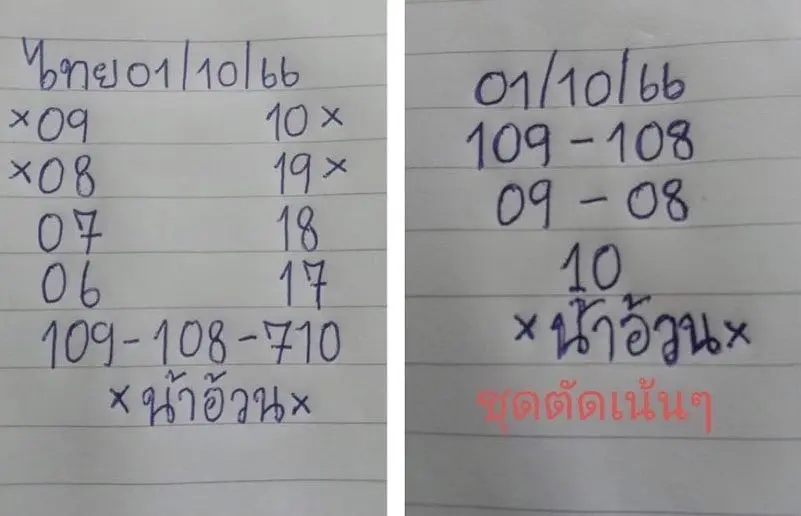 ไทย 01/10/66
×09 10×
×08 19×
07 18
06 17
109-108-710
×น้าอ้วน×
01/10/66
109-108
09-08
10
×น้าอ้วน×
ชุดตัดเน้นๆ